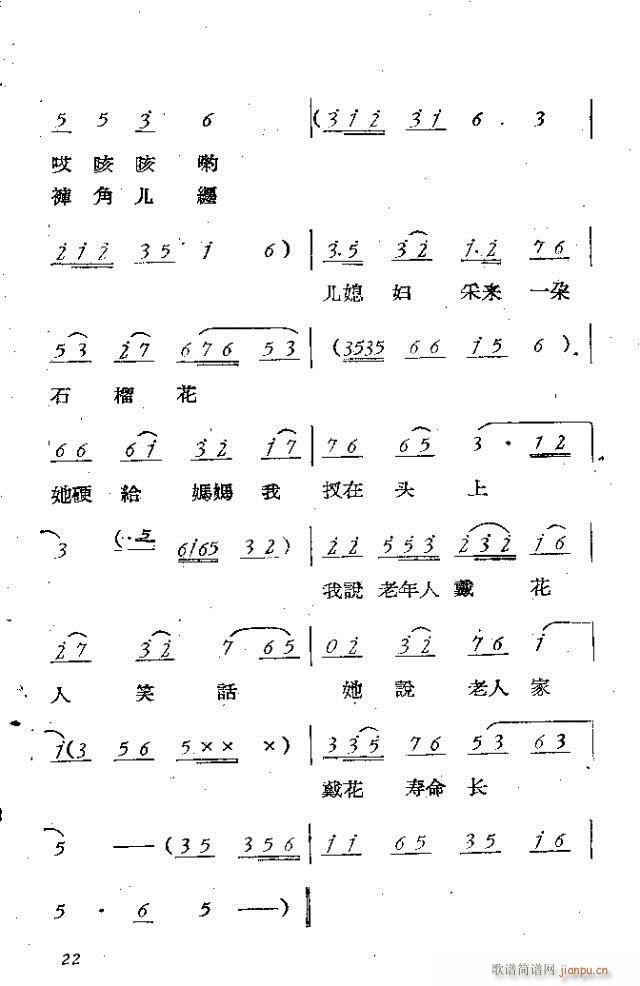 5 5 3 6 | (3 1 2 3 1 6 . 3 |
哎 咳 咳 喲
褲 角 儿 纏
2 1 2 3 5 1 6 ) | 3. 5 3 2 1. 2 7 6 |
儿媳 妇 采来 一朶
5 3 2 7 6 7 6 5 3 | ( 3535 6 6 1 5 6 ) |
石 榴 花
6 6 6 1 3 2 1 7 | 7 6 6 5 3 · 1 2
她硬 給 媽媽 我 扠在 头 上
3 ( 5 6165 3 2 ) | 2 2 5 5 3 2 3 2 1 6 |
我說 老年人 戴 花
2 7 3 2 7 6 5 | 0 2 3 2 7 6 1 |
人 笑 話 她 說 老人 家
1 ( 3 5 6 5 × × × ) | 3 3 5 7 6 5 3 6 3 |
戴花 寿命 长
5 —— ( 3 5 3 5 6 | 1 1 6 5 3 5 1 6 |
5 · 6 5 —— ) ‖
22
歌谱简谱网 jianpu.cn